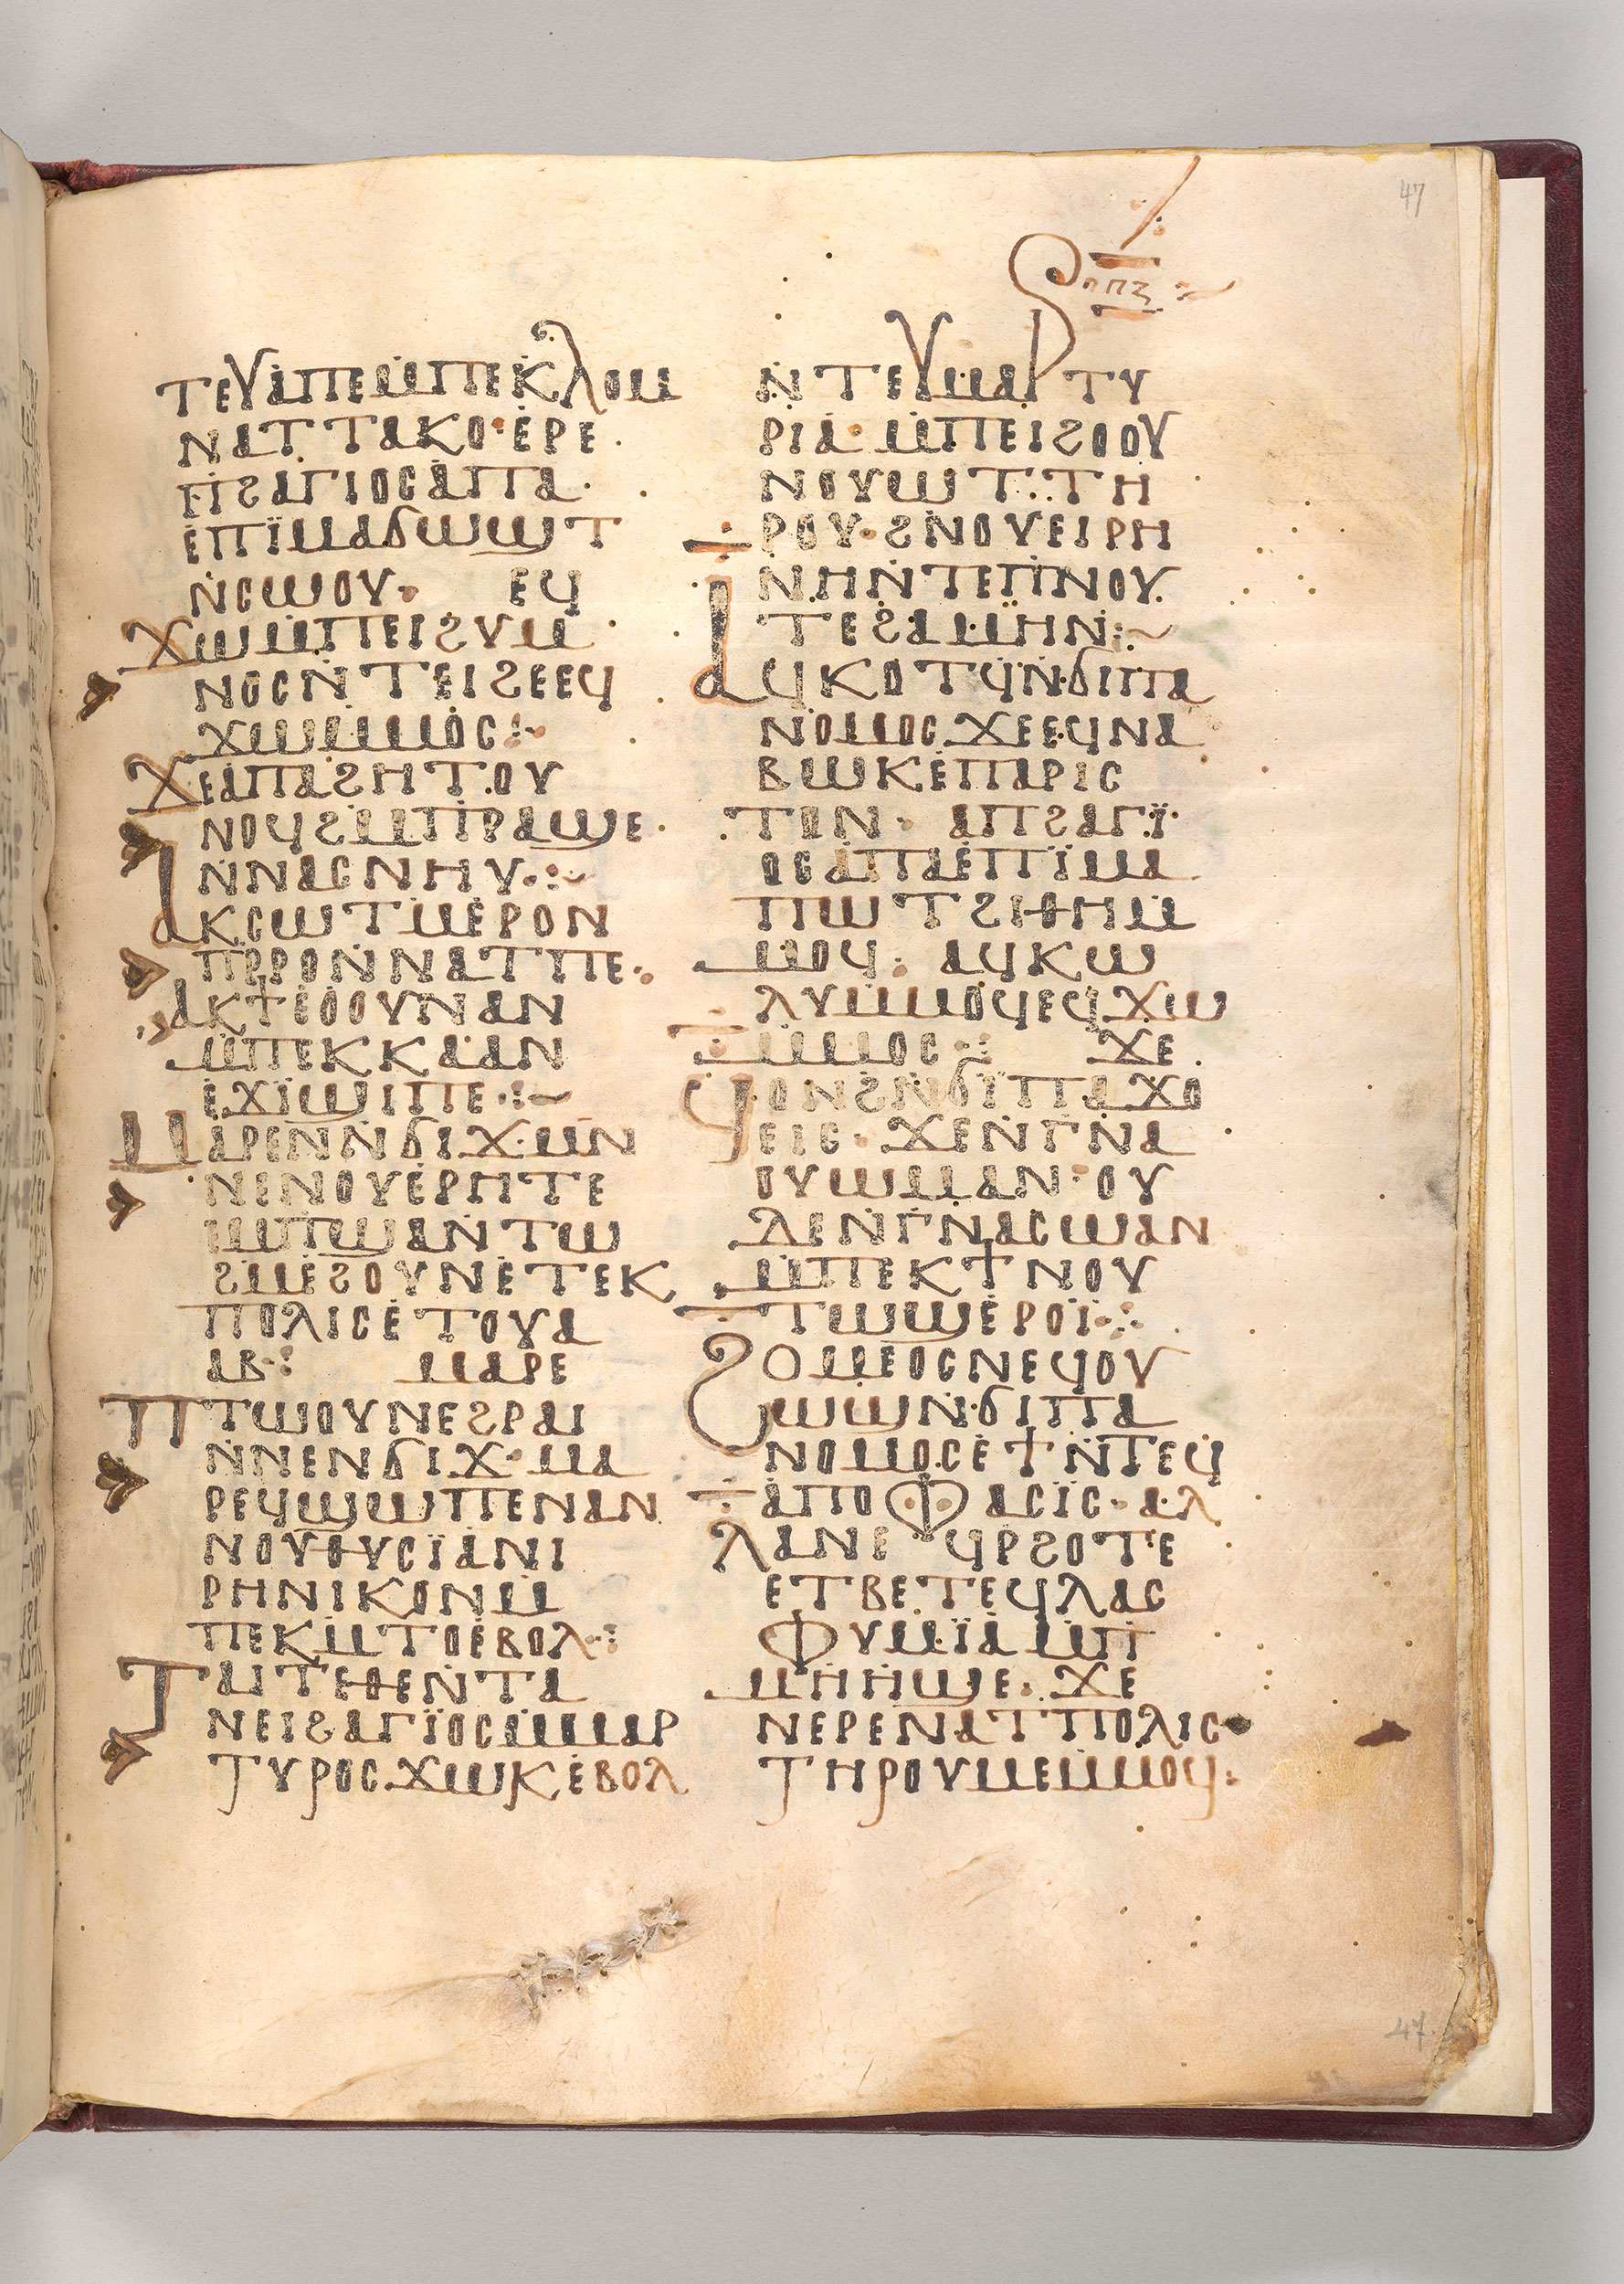 47
ⲣ̅ⲡ̅ⲍ̅
ⲧⲉⲩⲁⲡⲉⲙⲡⲉⲕⲗⲟⲙ
ⲛⲁⲧⲧⲁⲕⲟ·ⲉⲣⲉ
ⲡⲓϩⲁⲅⲓⲟⲥⲁⲡⲁ
ⲉⲡⲓⲙⲁϭⲱϣⲧ
ⲛ̇ⲥⲱⲟⲩ· ⲉϥ
ϫⲱⲙ̇ⲡⲉⲓϩⲩⲙ
ⲛⲟⲥⲛ̇ⲧⲉⲓϩⲉⲉϥ
ϫⲱⲙ̇ⲙⲟⲥ⁘
ϫⲉⲁⲡⲁϩⲏⲧⲟⲩ
ⲛⲟϥϩⲙ̇ⲡⲣⲁϣⲉ
ⲛ̇ⲛⲁⲥⲛⲏⲩ·⁘
ⲁⲕⲥⲱⲧⲙ̇ⲉⲣⲟⲛ
ⲡⲣ̇ⲣⲟⲛ̇ⲛⲁⲧⲡⲉ·
ⲁⲕϯⲉ̇ⲟⲟⲩⲛⲁⲛ
ⲙ̇ⲡⲉⲕⲕⲁⲁⲛ
ⲉϫⲓϣⲓⲡⲉ·⁘
ⲙⲁⲣⲉⲛ̇ⲛϭⲓϫ·ⲙⲛ
ⲛⲉⲛⲟⲩⲉⲣⲏⲧⲉ
ⲉⲙⲡϣⲁⲛ̇ⲧⲱ
ϩⲙ̇ⲉϩⲟⲩⲛⲉ̇ⲧⲉⲕ
ⲡⲟⲗⲓⲥⲉ̇ⲧⲟⲩⲁ
ⲁⲃ·⁘ ⲙⲁⲣⲉ
ⲡⲧⲱⲟⲩⲛⲉϩⲣⲁⲓ
ⲛ̇ⲛⲉⲛϭⲓϫ·ⲙⲁ
ⲣⲉϥϣⲱⲡⲉⲛⲁⲛ
ⲛⲟⲩⲑⲩⲥⲓ̈ⲁⲛⲓ
ⲣⲏⲛⲓⲕⲟⲛⲙ̇
ⲡⲉⲕⲙ̇ⲧⲟⲉ̇ⲃⲟⲗ·⁘
ⲧⲁⲓⲧⲉⲑⲉⲛ̇ⲧⲁ
ⲛⲉⲓϩⲁⲅⲓ̈ⲟⲥⲙ̇ⲙⲁⲣ
ⲧⲩⲣⲟⲥϫⲱⲕⲉ̇ⲃⲟⲗ
ⲛ̇ⲧⲉⲩⲙⲁⲣⲧⲩ
ⲣⲓⲁ·ⲙ̇ⲡⲉⲓϩⲟⲟⲩ
ⲛⲟⲩⲱⲧ·ⲧⲏ
ⲣⲟⲩ·ϩⲛⲟⲩⲉⲓⲣⲏ
ⲛⲏⲛ̇ⲧⲉⲡⲛⲟⲩ
ⲧⲉϩⲁⲙⲏⲛ⁘
ⲁϥⲕⲟⲧϥⲛ̇ϭⲓⲡⲁ
ⲛⲟⲙⲟⲥϫⲉⲉϥⲛⲁ
ⲃⲱⲕⲉ̇ⲡⲁⲣⲓⲥ
ⲧⲟⲛ· ⲁⲡϩⲁⲅⲓ̈
ⲟⲥⲁⲡⲁⲉⲡⲓ̈ⲙⲁ
ⲡⲱⲧϩⲓⲑⲏⲙ̇
ⲙⲟϥ· ⲁϥⲕⲱ
ⲗⲩⲙ̇ⲙⲟϥⲉϥϫⲱ
ⲙ̇ⲙⲟⲥ·⁘ ϫⲉ
ϥⲟⲛϩⲛ̇ϭⲓⲡϫⲟ
ⲉⲓⲥ· ϫⲉⲛⲅ̇ⲛⲁ
ⲟⲩⲱⲙⲁⲛ·ⲟⲩ
ⲗⲉⲛⲅ̇ⲛⲁⲥⲱⲁⲛ
ⲙ̇ⲡⲉⲕϯⲛⲟⲩ
ⲧⲱϣⲉ̇ⲣⲟⲓ̈·⁘
ϩⲟⲙⲉⲟⲥⲛⲉϥⲟⲩ
ⲱϣⲛ̇ϭⲓⲡⲁ
ⲛⲟⲙⲟⲥⲉϯⲛ̇ⲧⲉϥ
ⲁⲡⲟⲫⲁⲥⲓ̈ⲥ·ⲁⲗ
ⲗⲁⲛⲉϥⲣϩⲟⲧⲉ
ⲉⲧⲃⲉⲧⲉϥⲗⲁⲥ
ⲫⲩⲙⲓ̈ⲁⲙ̇ⲡ
ⲙⲏⲏϣⲉ· ϫⲉ
ⲛⲉⲣⲉⲛⲁⲧⲡⲟⲗⲓⲥ
ⲧⲏⲣⲟⲩⲙⲉⲙ̇ⲙⲟϥ·
47